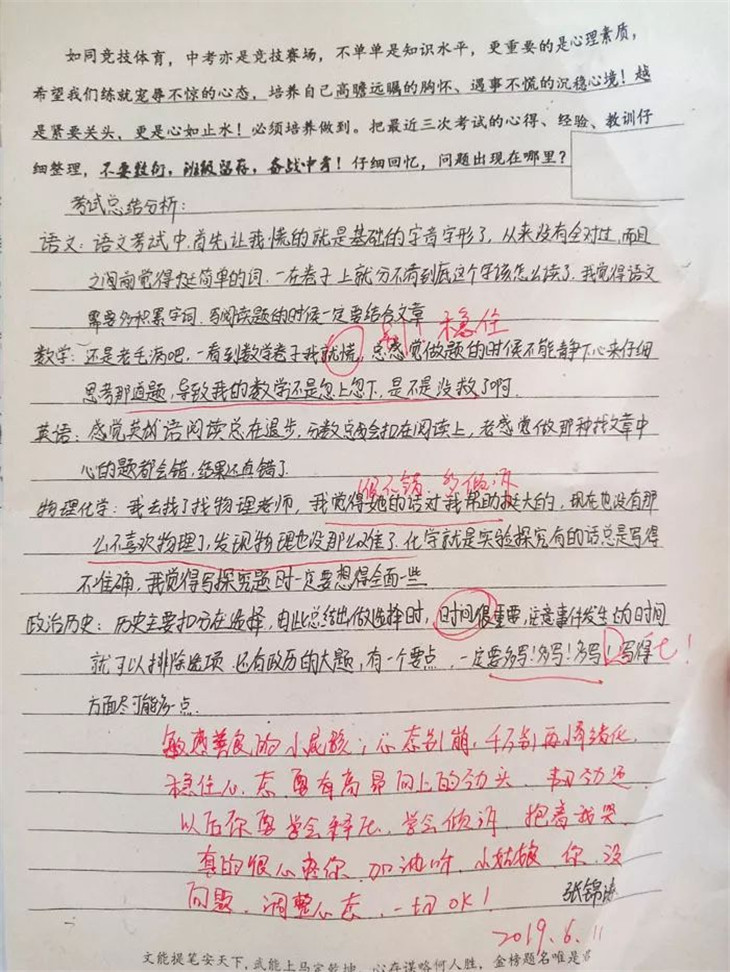 如同竞技体育，中考亦是竞技赛场，不单单是知识水平，更重要的是心理素质，
希望我们练就宠辱不惊的心态，培养自己高瞻远瞩的胸怀、遇事不慌的沉稳心境！越
是紧要关头，更是心如止水！必须培养做到。把最近三次考试的心得、经验、教训仔
细整理，不要敷衍，班级留存，备战中考！仔细回忆，问题出现在哪里？
考试总结分析：
语文：语文考试中，首先让我慌的就是基础的字音字形了，从来没有全对过，而且
之前觉得挺简单的词，一在卷子上就分不清到底这个字该怎么读了，我觉得语文
需要多积累字词，写阅读题的时候一定要结合文章
稳住
数学：还是老毛病吧，一看到数学卷子我就慌，总感觉做题的时候不能静下心来仔细
思考那道题，导致我的数学不是忽上忽下，是不是没救了啊
英语：感觉英语阅读总在退步，分数总会扣在阅读上，老感觉做那种找文章中
心的题都会错，结果还真错了
很不错，多倾诉
物理化学：我去找了找物理老师，我觉得她的话对我帮助挺大的，现在也没有那
么不喜欢物理了，发现物理也没那么难了，化学就是实验探究有的话总是写得
不准确，我觉得写探究题时一定要想得全面一些
政治历史：历史主要扣分在选择，由此总结出做选择时，时间很重要，注意事件发生的时间
就可以排除选项，还有政历的大题，有一个要点，一定要多写！多写！多写！写得
方面尽可能多一点
敏感善良的小屁孩：心态别崩，千万别再情绪化
稳住心态，要有高昂向上的劲头，韧劲还
以后你要学会释压，学会倾诉，抱着我哭
真的很心疼你，加油呀，小姑娘，你没
问题，调整心态，一切OK！ 张锦
2019.6.11
文能提笔安天下，武能上马定乾坤，心存谋略何人胜，金榜题名唯是